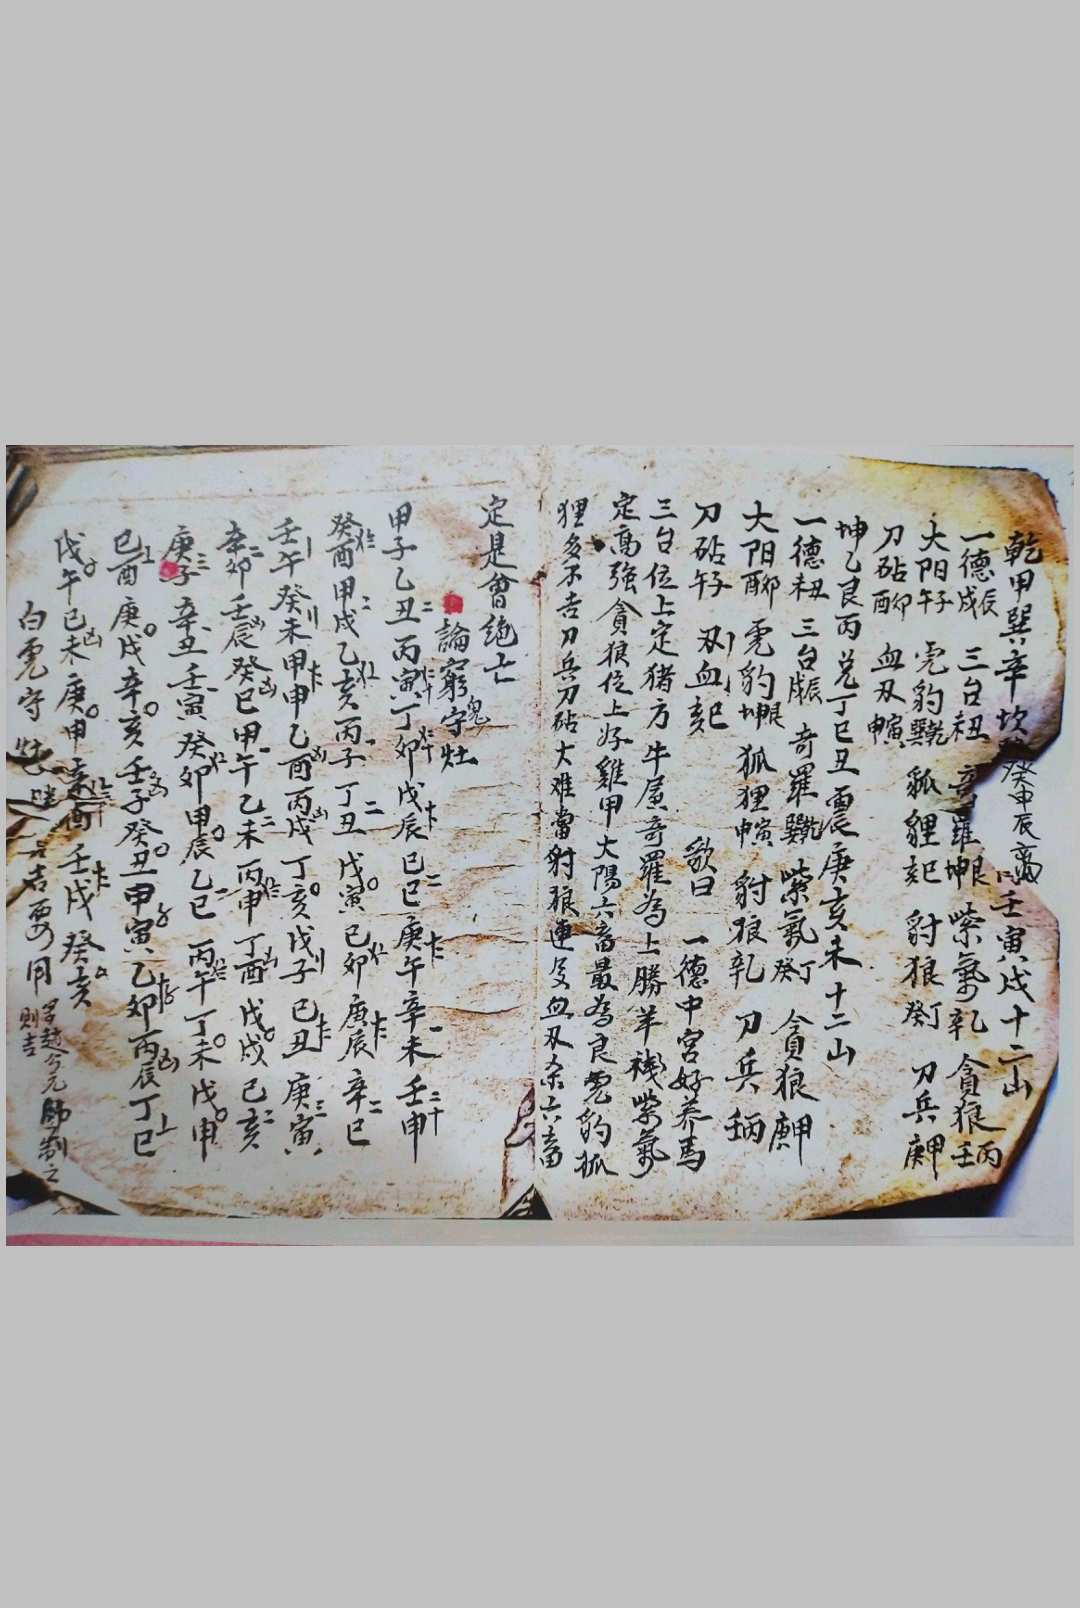 乾甲巽辛坎癸申辰离壬寅戌十二山
一德戌辰 三台丑 奇羅坤艮 紫氣乾 貪狼壬丙
大阳午子 虎豹巽乾 狐狸巳 豺狼癸丁 刀兵庚甲
刀砧酉卯 血刃申寅
坤乙艮丙兑丁巳丑震庚亥未十二山
一德未丑 三台戌辰 奇羅巽乾 紫氣癸丁 貪狼庚甲
大阳酉卯 虎豹坤艮 狐狸申寅 豺狼乾 刀兵壬丙
刀砧午子 刃血亥巳 歌曰 一德中宮好养馬
三台位上定猪方牛屋奇羅為上勝羊棧紫氣
定高強貪狼位上好雞甲大陽六畜最為良虎豹狐
狸多不吉刀兵刀砧大难當豺狼連及血刃杀六畜
定是曾絶亡
論窮鬼守灶
甲子乙丑丙寅丁卯戊辰己巳庚午辛未壬申
癸酉甲戌乙亥丙子丁丑戊寅己卯庚辰辛巳
壬午癸未甲申乙酉丙戌丁亥戊子己丑庚寅
辛卯壬辰癸巳甲午乙未丙申丁酉戊戌己亥
庚子辛丑壬寅癸卯甲辰乙巳丙午丁未戊申
己酉庚戌辛亥壬子癸丑甲寅乙卯丙辰丁巳
戊午己未庚申辛酉壬戌癸亥
白虎守灶 吉要用 則吉 師制之